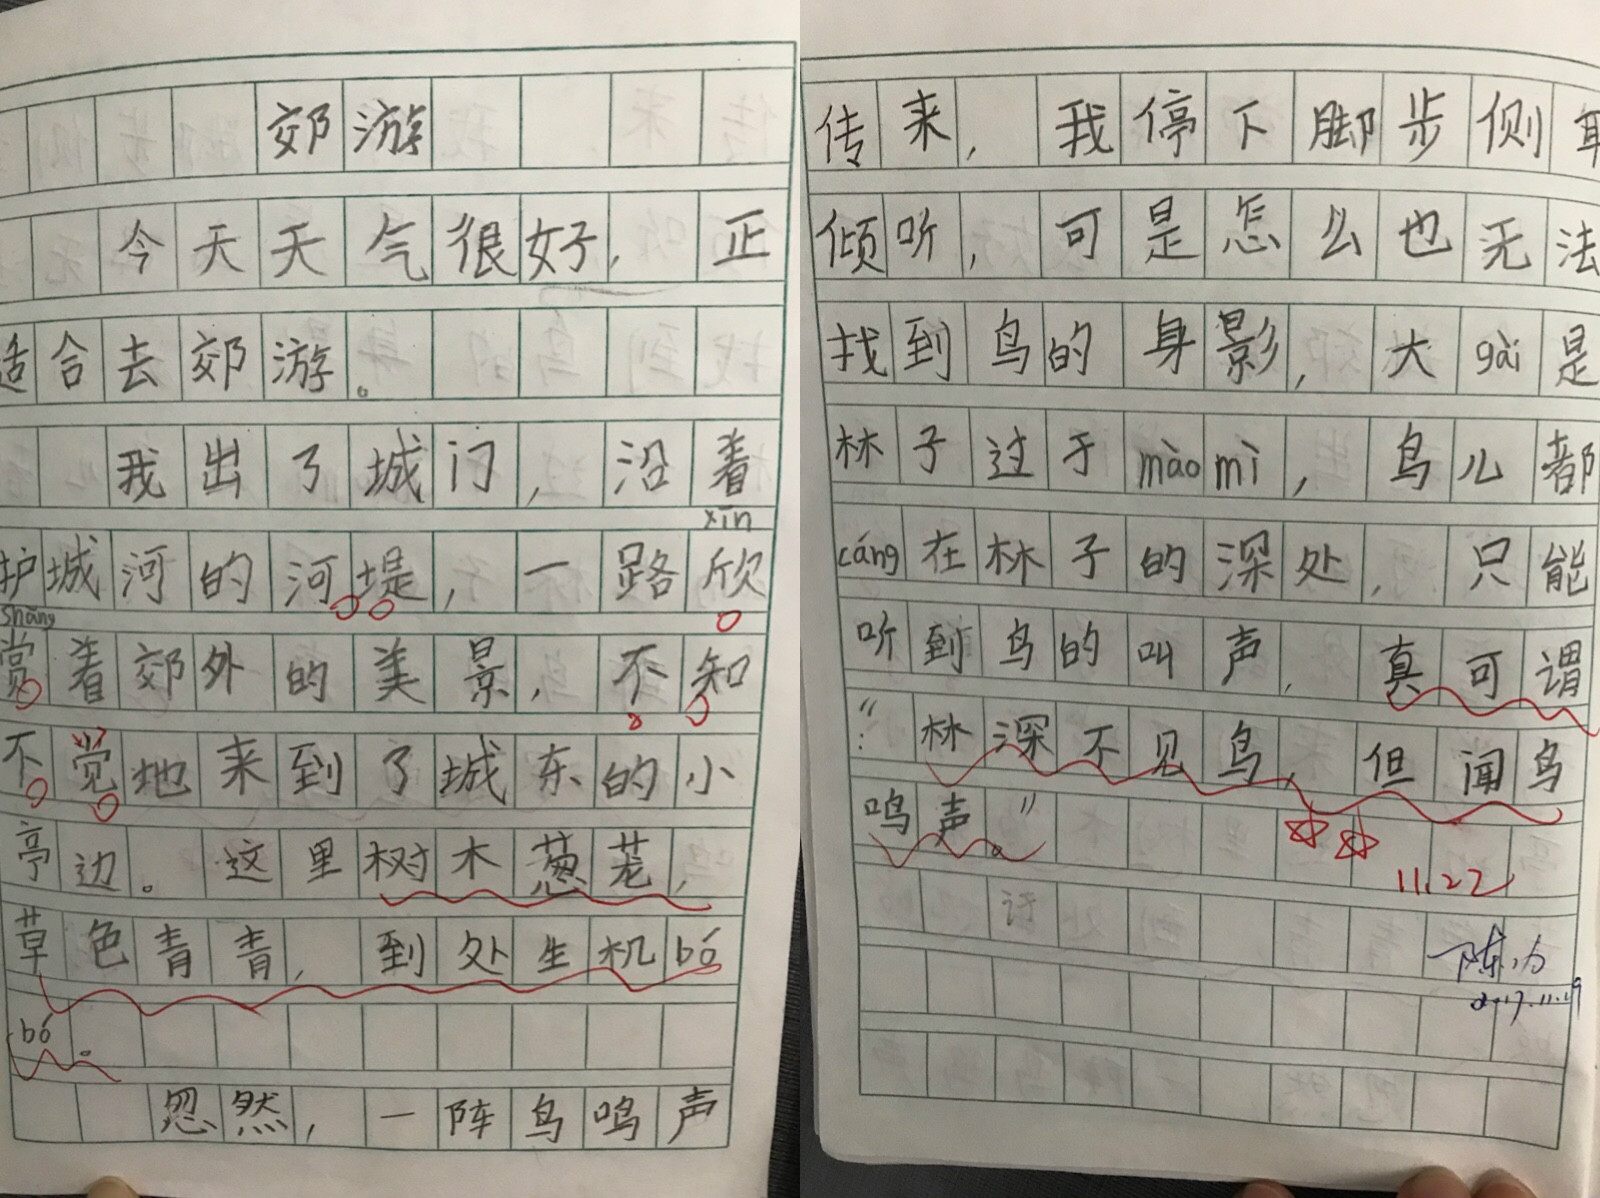 郊游
今天天气很好，正
适合去郊游。
我出了城门，沿着
xīn
护城河的河堤，一路欣
shǎng
赏着郊外的美景，不知
不觉地来到了城东的小
亭边。这里树木葱茏，
草色青青，到处生机bó
bó。
忽然，一阵鸟鸣声
传来，我停下脚步侧耳
倾听，可是怎么也无法
找到鸟的身影，大gài是
林子过于mào mì，鸟儿都
cáng在林子的深处，只能
听到鸟的叫声，真可谓
“林深不见鸟，但闻鸟
鸣声。”
11.22
2017.11.19